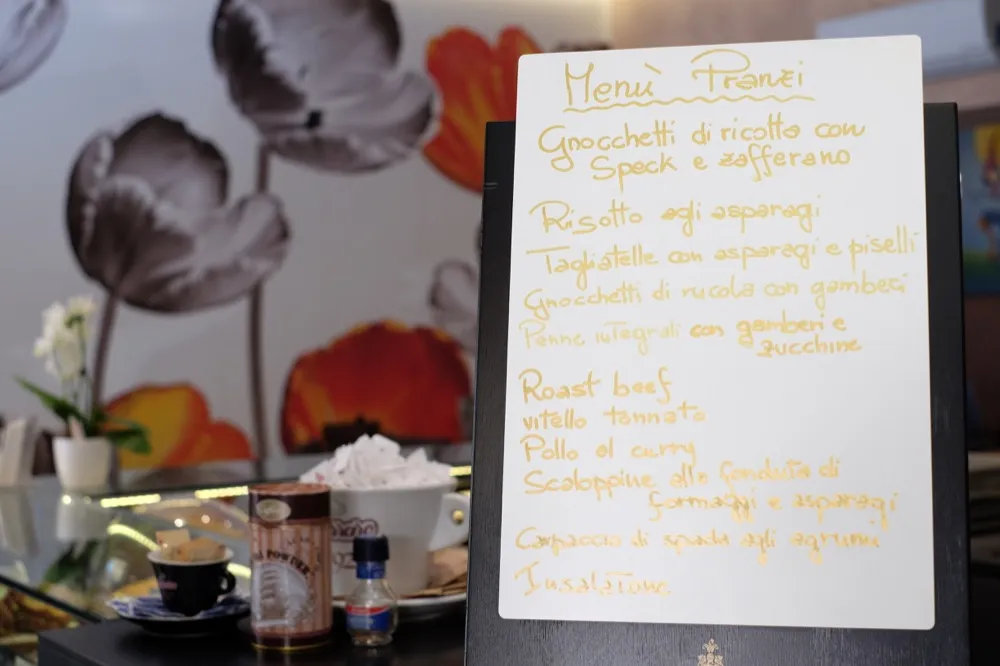 Menù Pranzi
Gnocchetti di ricotta con
Speck e zafferano
Risotto agli asparagi
Tagliatelle con asparagi e piselli
Gnocchetti di rucola con gamberi
Penne integrali con gamberi e
zucchine
Roast beef
vitello tonnato
Pollo al curry
Scaloppine alla fonduta di
formaggi e asparagi
Carpaccio di spada agli agrumi
Insalatone
POWDER